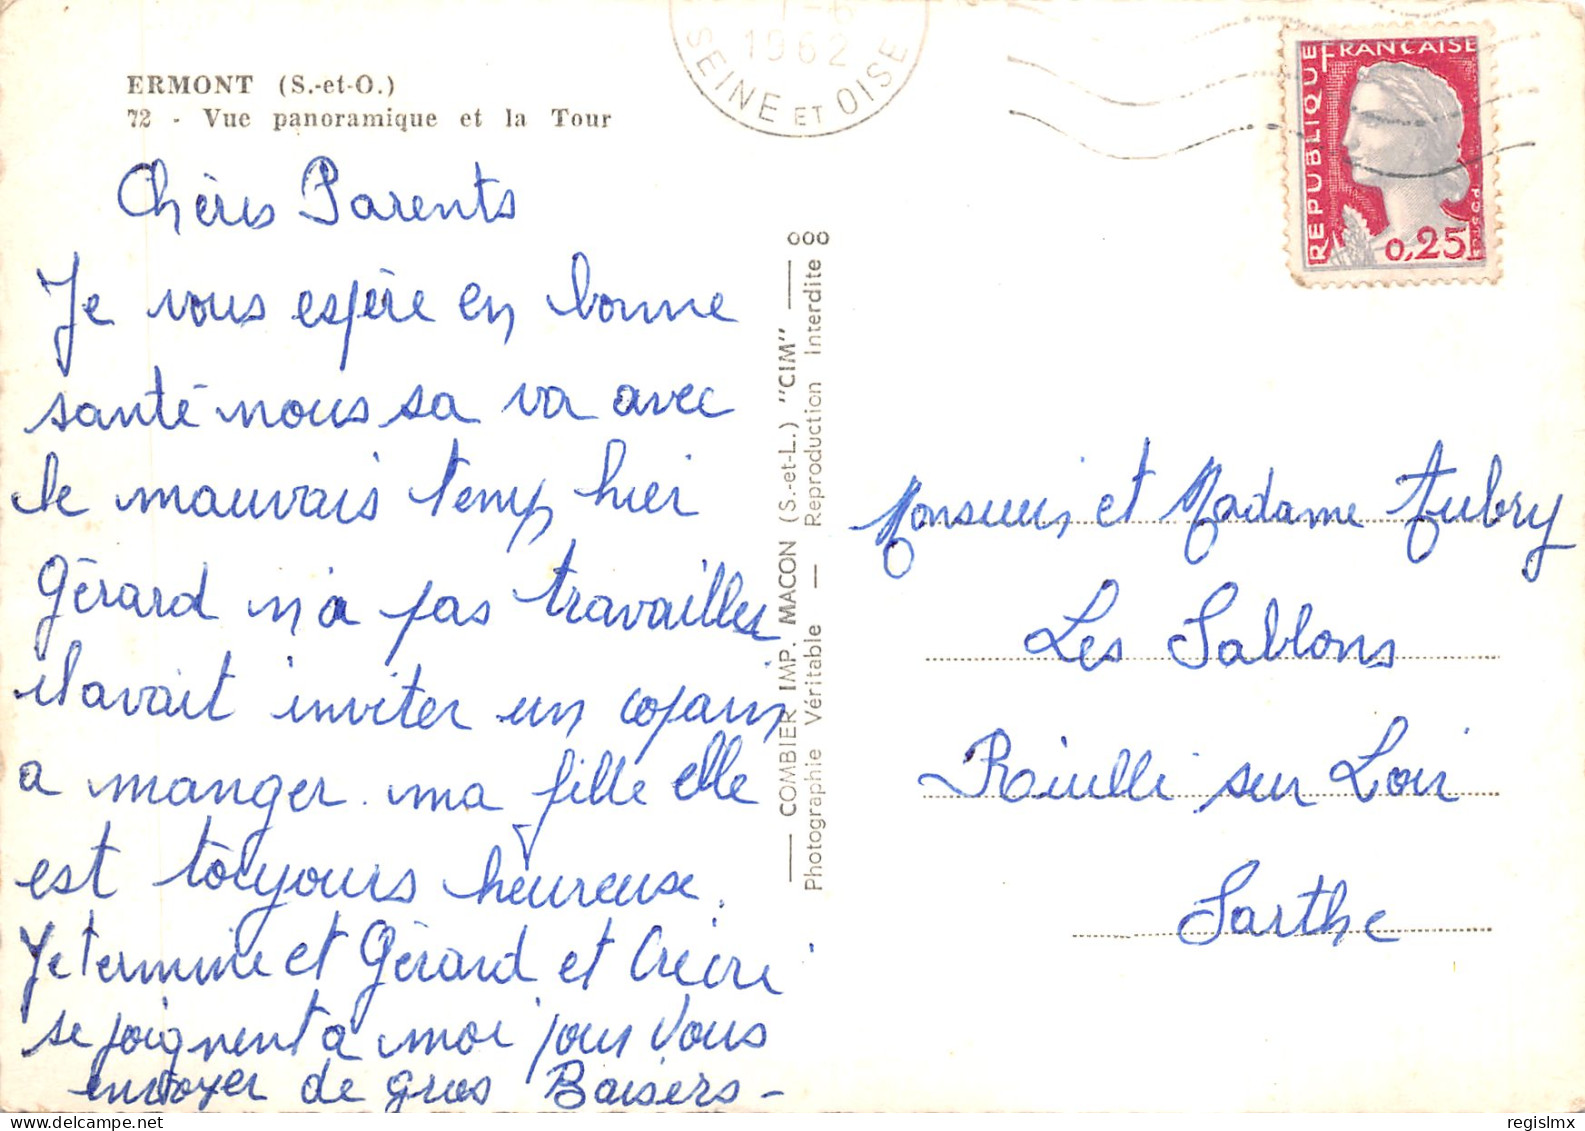 ERMONT (S.-et-O.)
72 - Vue panoramique et la Tour
Chères Parents
Je vous espère en bonne
santé nous sa va avec
le mauvais temp hier
Gérard n'a pas travailler
il avait inviter un copain
a manger. ma fille elle
est toujours heureuse.
Je termine et Gérard et
se joignent a moi pour vous
envoyer de gros Baisers -
COMBIER IMP. MACON (S.-et-L.) "CIM"
Photographie Véritable — Reproduction Interdite
1962
SEINE ET OISE
REPUBLIQUE
FRANÇAISE
0,25
Monsieur et Madame Aubry
Les Sablons
sur Loir
Sarthe
regislmx